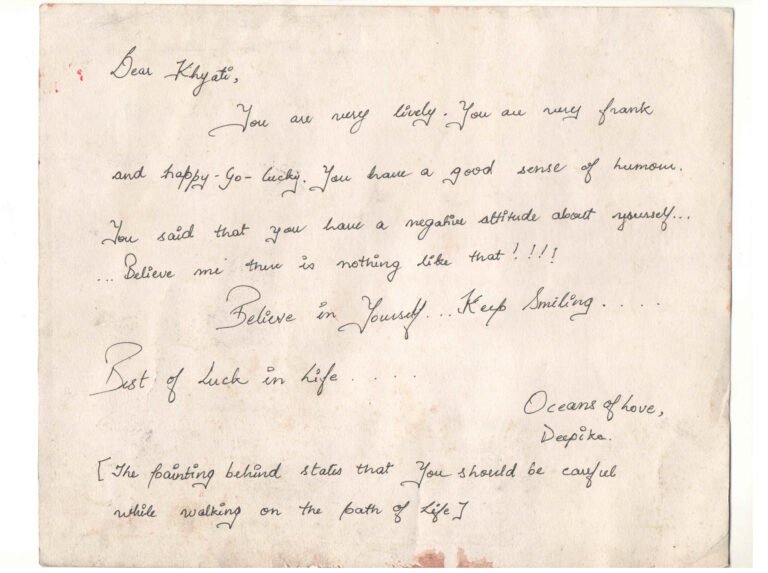 Dear Khyati,
You are very lively. You are very frank
and happy-Go-lucky. You have a good sense of humour.
You said that you have a negative attitude about yourself...
... Believe me there is nothing like that!!!!
Believe in Yourself... Keep Smiling . . . .
Best of Luck in Life . . . .
Oceans of Love,
Deepika.
[The painting behind states that You should be careful
while walking on the path of Life]